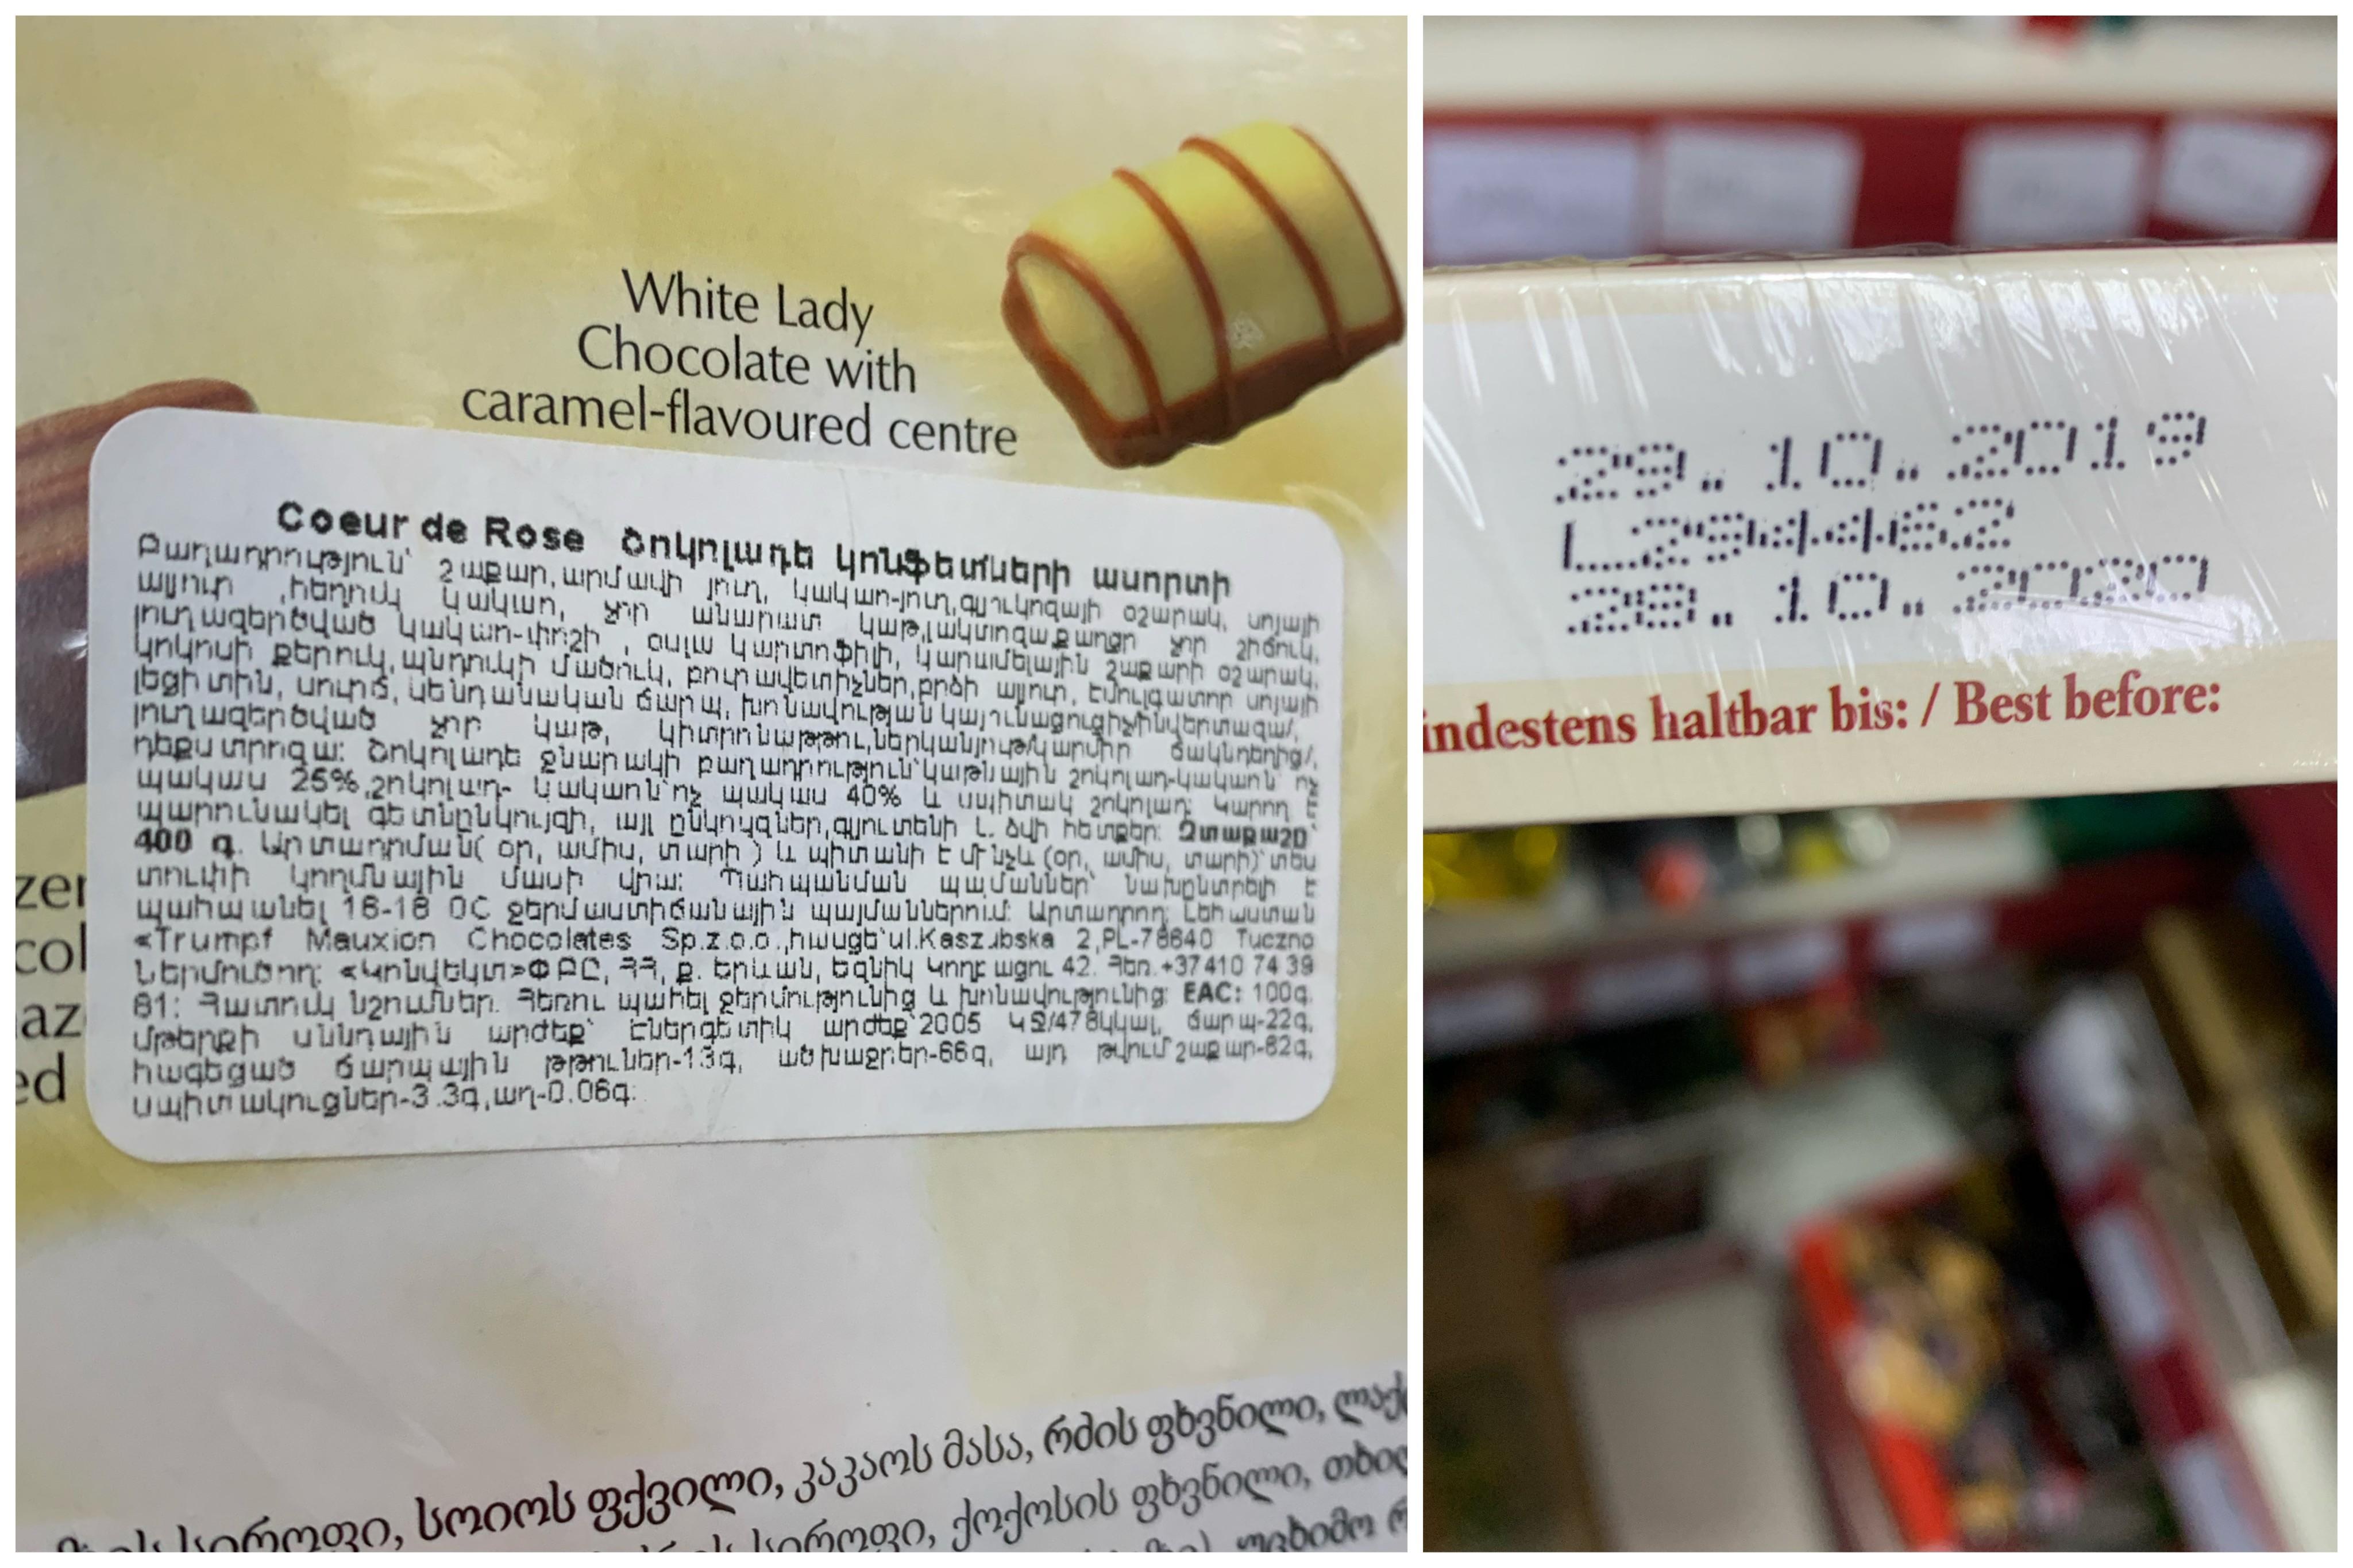 White Lady
Chocolate with
caramel-flavoured centre
Coeur de Rose Շոկոլադե կոնֆետների ասորտի
Բաղադրություն՝ շաքար,արմավի յուղ, կակաո-յուղ,գլյուկոզայի օշարակ, սոյայի
ալյուր ,հեղուկ կակաո, չոր անարատ կաթ,լակտոզա,քաղցր չոր շիճուկ,
յուղազերծված կակաո-փոշի , օսլա կարտոֆիլի, կարամելային շաքարի օշարակ,
կոկոսի քերուկ,պնդուկի մածուկ, բուրավետիչներ,բրձի ալյուր, էմուլգատոր սոյայի
լեցիտին, սուրճ, կենդանական ճարպ, խոնավության կայունացուցիչ/ինվերտազա/,
յուղազերծված չոր կաթ, կիտրոնաթթու,ներկանյութ/կարմիր ճակնդեղից/,
դեքստրոզա: Շոկոլադե ջնարակի բաղադրություն՝կաթնային շոկոլադ-կակաոն ոչ
պակաս 25%,շոկոլադ- կակաոն՝ոչ պակաս 40% և սպիտակ շոկոլադ: Կարող է
պարունակել գետնընկույզի, այլ ընկույզներ,գլյուտենի և ձվի հետքեր: Զտաքաշը՝
400 գ. Արտադրման( օր, ամիս, տարի ) և պիտանի է մինչև (օր, ամիս, տարի)՝տես
տուփի կողմնային մասի վրա: Պահպանման պամաններ՝ նախընտրելի է
պահպանել 16-18 0C ջերմաստիճանային պայմաններում: Արտադրող: Լեհաստան
«Trumpf Mauxion Chocolates Sp.z.o.o.,հասցե՝ul.Kaszubska 2,PL-78640 Tuczno
Ներմուծող: «Կոնվեկտ»ՓԲԸ, ՀՀ, ք. Երևան, Եզնիկ Կողբացու 42. Հեռ.+37410 74 39
81: Հատուկ նշումներ. Հեռու պահել ջերմությունից և խոնավությունից: EAC: 100գ.
մթերքի սննդային արժեք՝ էներգետիկ արժեք՝2005 կՋ/478կկալ, ճարպ-22գ,
հագեցած ճարպային թթուներ-13գ, ածխաջրեր-66գ, այդ թվում շաքար-62գ,
սպիտակուցներ-3.3գ,աղ-0.06գ:
ed
სიროფი, სოიოს ფქვილი, კაკაოს მასა, რძის ფხვნილი,
სიროფი, ქოქოსის ფხვნილი,
29.10.2019
L294462
28.10.2020
indestens haltbar bis: / Best before: